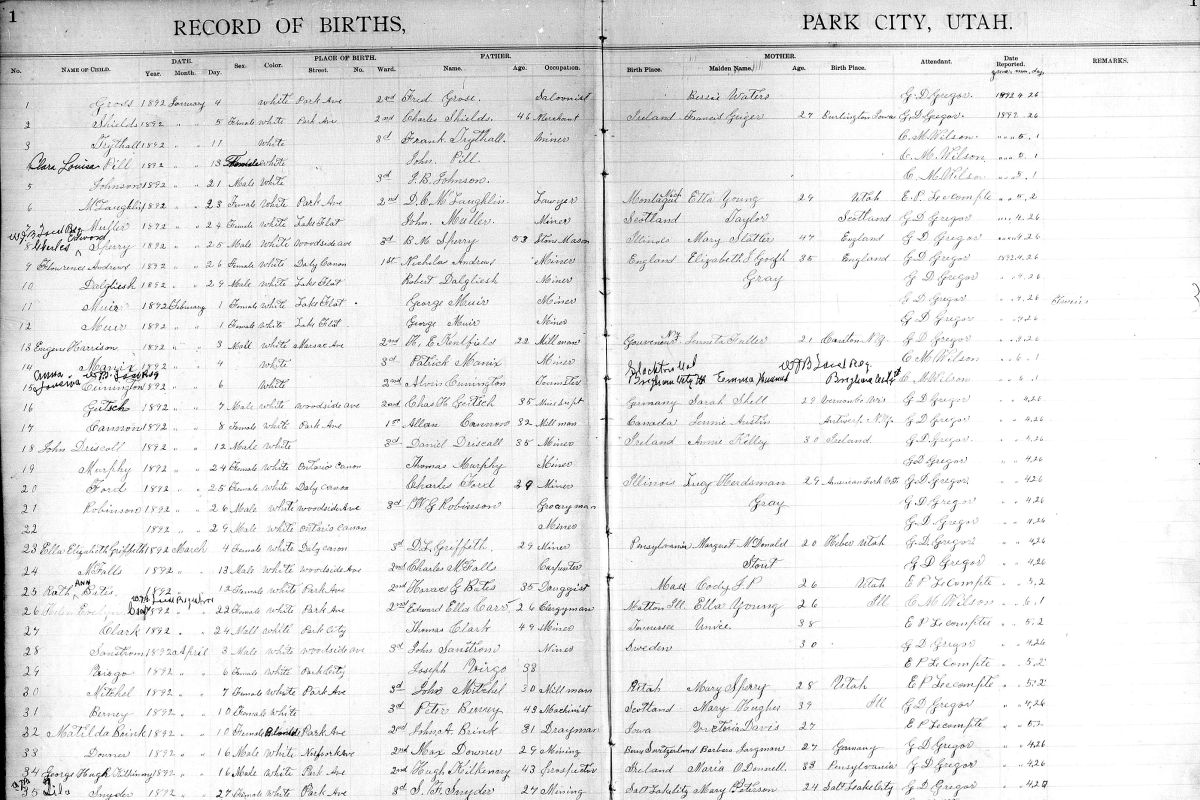 1
RECORD OF BIRTHS,
PARK CITY, UTAH.
1
No. NAME OF CHILD. DATE. Year. Month. Day. Sex. Color. PLACE OF BIRTH. Street. No. Ward. FATHER. Name. Age. Occupation. Birth Place. MOTHER. Maiden Name. Age. Birth Place. Attendant. Date Reported. REMARKS.
1 Gross 1892 January 4 White Park Ave 2nd Fred Grose. Saloonist Bessie Waters G D Gregor 1892 4 26
2 Shields 1892 " " 5 Female White Park Ave 2nd Charles Shields 46 Merchant Ireland Francis Geiger 27 Burlington Iowa G. D. Gregor. 1892 " 26
3 Trythall 1892 " " 11 White 3d Frank Trythall. Miner C. M. Wilson " " 5. 1
Clara Louisa Pill 1892 " " 13 Female White John. Pill C. M. Wilson " " 5. 1
5 Johnson 1892 " " 21 Male White 3d J. B. Johnson. C. M. Wilson " " 5. 1
6 McLaughlin 1892 " " 23 Female White Park Ave 2nd D. C. McLaughlin Lawyer Montague Mich Ella Young 29 Utah E. P. Lecompte " " 5. 2
Muller 1892 " " 24 Female White Lake Flat John. Muller Miner Scotland Taylor Scotland G D Gregor " " 4. 26
8 Charles Edward Sperry 1892 " " 25 Male White Woodside ave 3d B. M Sperry 53 Stone Mason Illinois Mary Slatter 47 England G D Gregor " " 4. 26
9 Flourence Andrews 1892 " " 26 Female White Daly Canon 1st Nicholas Andrew Miner England Elizabeth J Goff 35 England G. D Gregor 1892 4 26
10 Dalgliesh 1892 " " 29 Male White Lake Flat Robert Dalgliesh Miner Gray G D Gregor " " 4 26
11 Muir 1892 February 1 Female White Lake Flat George Muir Miner G D Gregor " " 4. 26
12 Muir 1892 " " 1 Female White Lake Flat George Muir Miner G D Gregor " " 4 26
13 Eugene Harrison 1892 " " 3 Male White Marsac Ave 2nd H. E. Kentfield 22 Mill man Gouverneur N.Y Jennette Fuller 21 Canton N.Y. G D Gregor " " 3 26
14 Manix 1892 " " 4 White 3d Patrick Manix Miner C M Wilson " " 5. 1
15 Anna Cunnington 1892 " " 6 White 2nd Alvin Cunnington Teamster Brigham City Ut Emma Brigham City Ut C. M. Wilson " " 5. 1
16 Gutsch 1892 " " 7 Male White Woodside ave 2nd Chas H. Gutsch 35 Mine Supt Germany Sarah Shell 29 G D Gregor " " 4. 26
17 Cannon 1892 " " 8 Female White Park Ave 1st Allan Cannon 32 Mill man Canada Jennie Austin Antwerp N.Y. G D Gregor " " 4. 26
18 John Driscoll 1892 " " 12 Male White 3d Daniel Driscall 35 Miner Ireland Annie Kelley 30 Ireland G. D. Gregor " " 4. 26
19 Murphy 1892 " " 24 Female White Ontario Canon Thomas Murphy Miner G D Gregor " " 4 26
20 Ford 1892 " " 25 Female White Daly canon Charles Ford 29 Miner Illinois Lucy Herdsman 29 American Fork Utah G D Gregor " " 4 26
21 Robinson 1892 " " 26 Male White Woodside Ave 3d W G Robinson Grocery man Gray G D Gregor " " 4 26
22 1892 " " 29 Male White Ontario Canon Miner G D Gregor " " 4 26
23 Ella Elizabeth Griffeth 1892 March 4 Female White Daly canon 3d D. L. Griffeth. 29 Miner Pensylvania Margret McDonald 20 Heber Utah G D Gregor " " 4 26
24 McFalls 1892 " " 13 Male White Woodside Ave 2nd Charles McFalls Carpenter Stout G D Gregor " " 4 26
25 Ruth Ann Bates 1892 " " 13 Female White Park Ave 2nd Horace G Bates 35 Druggist Mass Cody J. P 26 Utah E. P Lecompte " " 5. 2
26 Helen Evelyn Carr 1892 " " 22 Female White Park Ave 2nd Edward Ellis Carr 26 Clergyman Matton Ill. Ella Young 26 Ill C. M Wilson " " 6. 1
27 Clark 1892 " " 24 Male White Park City Thomas Clark 49 Miner Tennessee Unice 38 E P Lecompte " " 5. 2
28 Sanstrom 1892 April 3 Male White Woodside ave 3d John Sanstrom Miner Sweden 30 G D Gregor " " 4 26
29 Virgo 1892 " " 6 Female White Park City Joseph Virgo 33 E P. Lecompte " " 5. 2
30 Mitchel 1892 " " 7 Female White Park Ave 3d John Mitchel 30 Mill man Utah Mary Sperry 28 Utah E P. Lecompte " " 5. 2
31 Berney 1892 " " 10 Female White 3d Peter Berney 43 Machinist Scotland Mary Hughes 39 Ill G D Gregor " " 4 26
32 Matilda Brink 1892 " " 10 Female Park Ave 2nd John A. Brink 31 Drayman Iowa Victoria Davis 27 E P. Lecompte " " 5 2
33 Downer 1892 " " 16 Male White Norfork Ave 2nd Max Downer 29 Mining Bern Switzerland Barbara Juryman 27 Germany G D Gregor " " 4 26
34 George Hugh Kilkenny 1892 " " 16 Male White Park Ave 2nd Hugh Kilkenny 43 Prospector Ireland Maria O'Donnell 33 Pensylvania G D Gregor " " 4 26
35 Lila Snyder 1892 " " 27 Female White Park Ave 3d S. F. Snyder 27 Mining Salt Lake City Mary Peterson 24 Salt Lake City G D Gregor " " 4 29